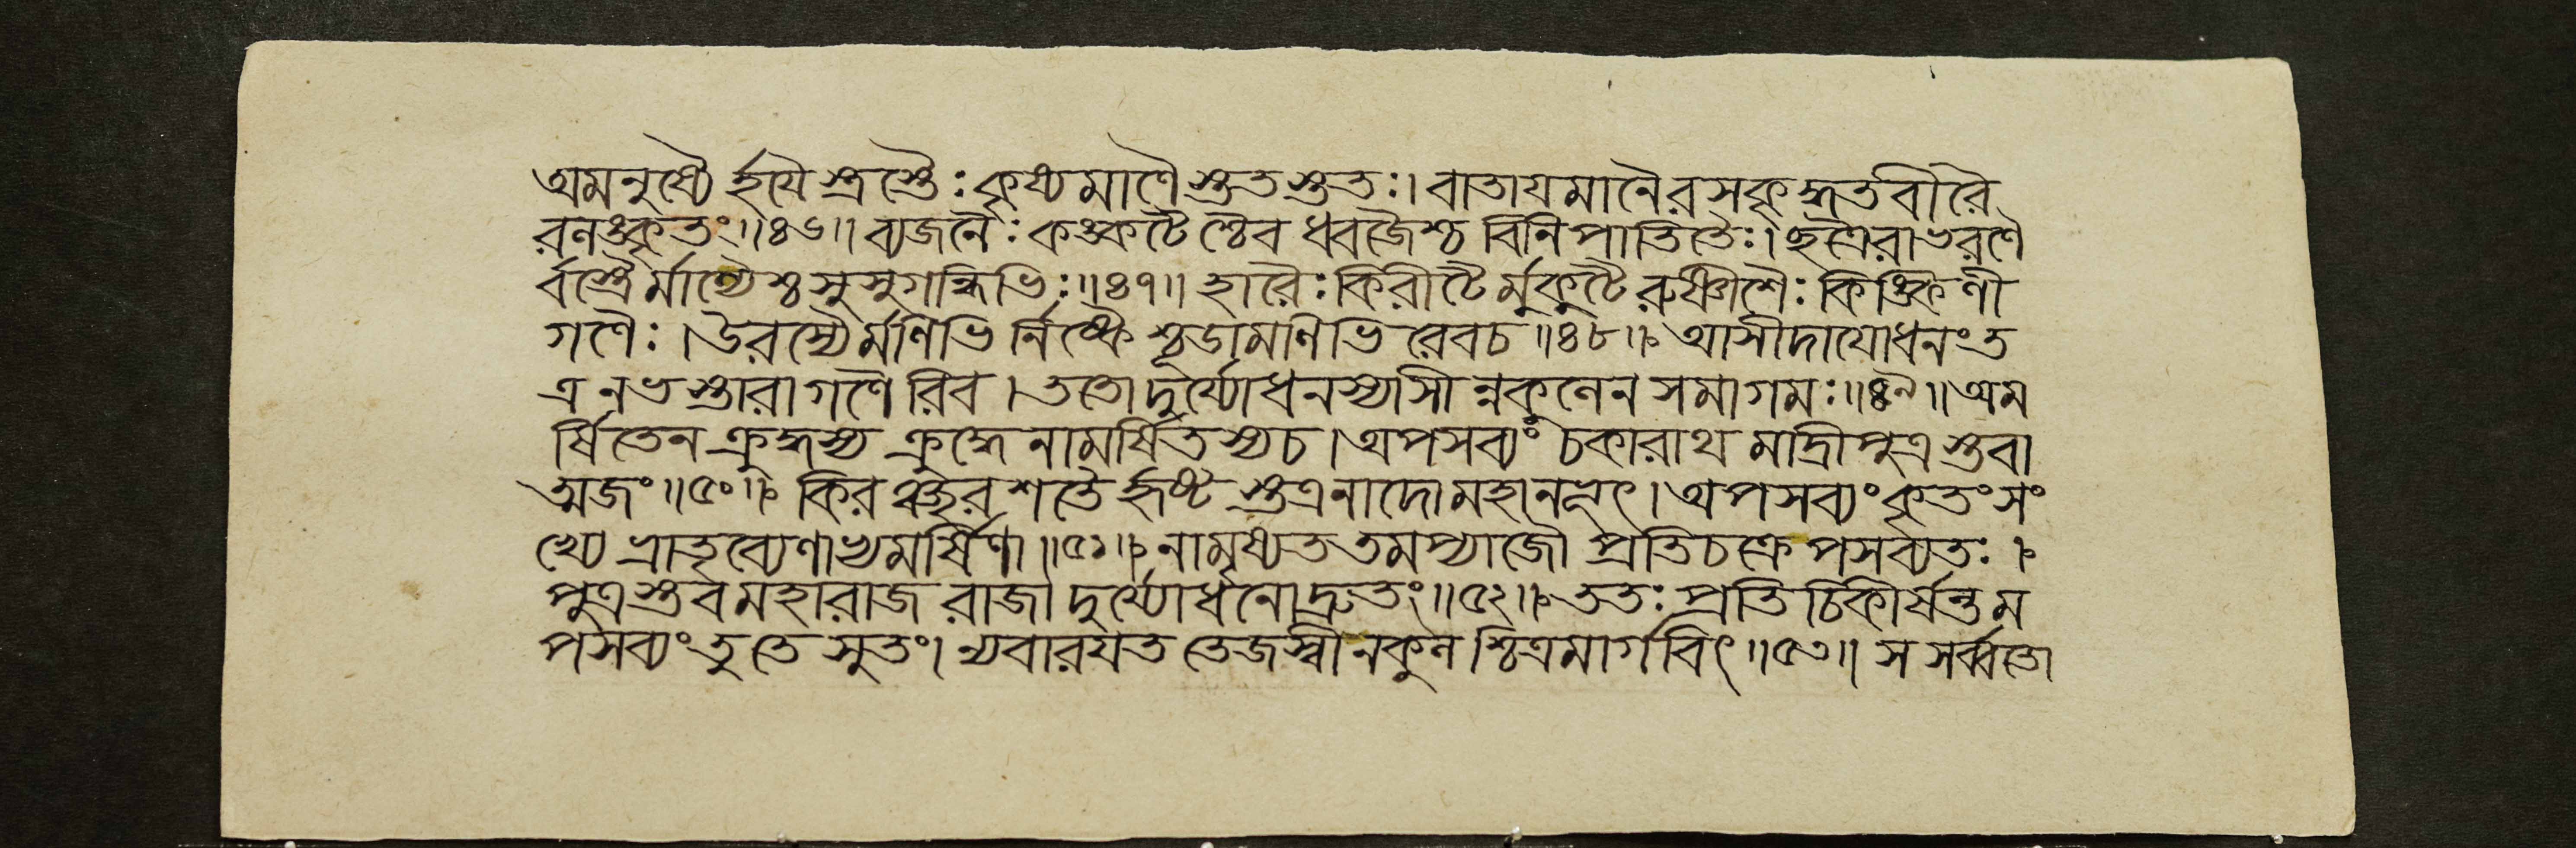 অমনুষ্যৈর্হয়ৈস্ত্রস্তৈঃ কৃষ্যমাণৈস্ততস্ততঃ। বাতায়মানৈরসকৃদ্ধতবীরৈ
রলঙ্কৃতং॥৪৬॥ ব্যজনৈঃ কঙ্কটৈশ্চৈব ধ্বজৈশ্চ বিনিপাতিতৈঃ। ছত্রৈরাভরণৈ
র্বস্ত্রৈর্মাল্যৈশ্চ সুসুগন্ধিভিঃ॥৪৭॥ হারৈঃ কিরীটৈর্মুকুটৈরুষ্ণীশৈঃ কিঙ্কিণী
গণৈঃ। উরস্যৈর্মণিভির্নিষ্কৈশ্চূডামণিভিরেবচ॥৪৮॥ আসীদাযোধনং ত
ত্র নভস্তারাগণৈরিব। ততো দুর্য্যোধনস্যাসীন্নকুলেন সমাগমঃ॥৪৯॥ অম
র্ষিতেন ক্রুদ্ধস্য ক্রুদ্ধেনামর্ষিতস্যচ। অপসব্যং চকারাথ মাদ্রীপুত্রস্তবা
ত্মজং॥৫০॥ কিরঞ্ছরশতৈর্হৃষ্টস্তত্র নাদো মহানভূৎ। অপসব্যং কৃতং সং
খ্যে ভ্রাতৃব্যেণাত্যমর্ষিণা॥৫১॥ নামৃষ্যত তমপ্যাজৌ প্রতিচক্রেপসব্যতঃ।
পুত্রস্তব মহারাজ রাজা দুর্য্যোধনো দ্রুতং॥৫২॥ ততঃ প্রতিচিকীর্ষন্তম
পসব্যং তু তে সুতং। ন্যবারয়ত তেজস্বী নকুলশ্চিত্রমার্গবিৎ॥৫৩॥ স সর্ব্বতো